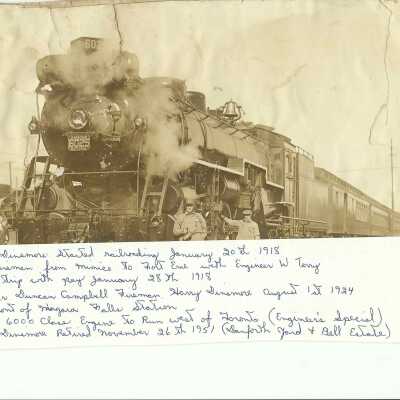 60
Dinsmore Started railroading January 20th 1918
from Mimico To Fort Erie with Engineer W Terry
Trip with Pay January 28th 1918
Duncan Campbell Fireman Harry Dinsmore August 1st 1924
ont of Niagara Falls Station
6000 Class Engine to Run west of Toronto (Engineer's Special)
Dinsmore Retired November 26th 1951 (Danforth Yard & Bell Estate)